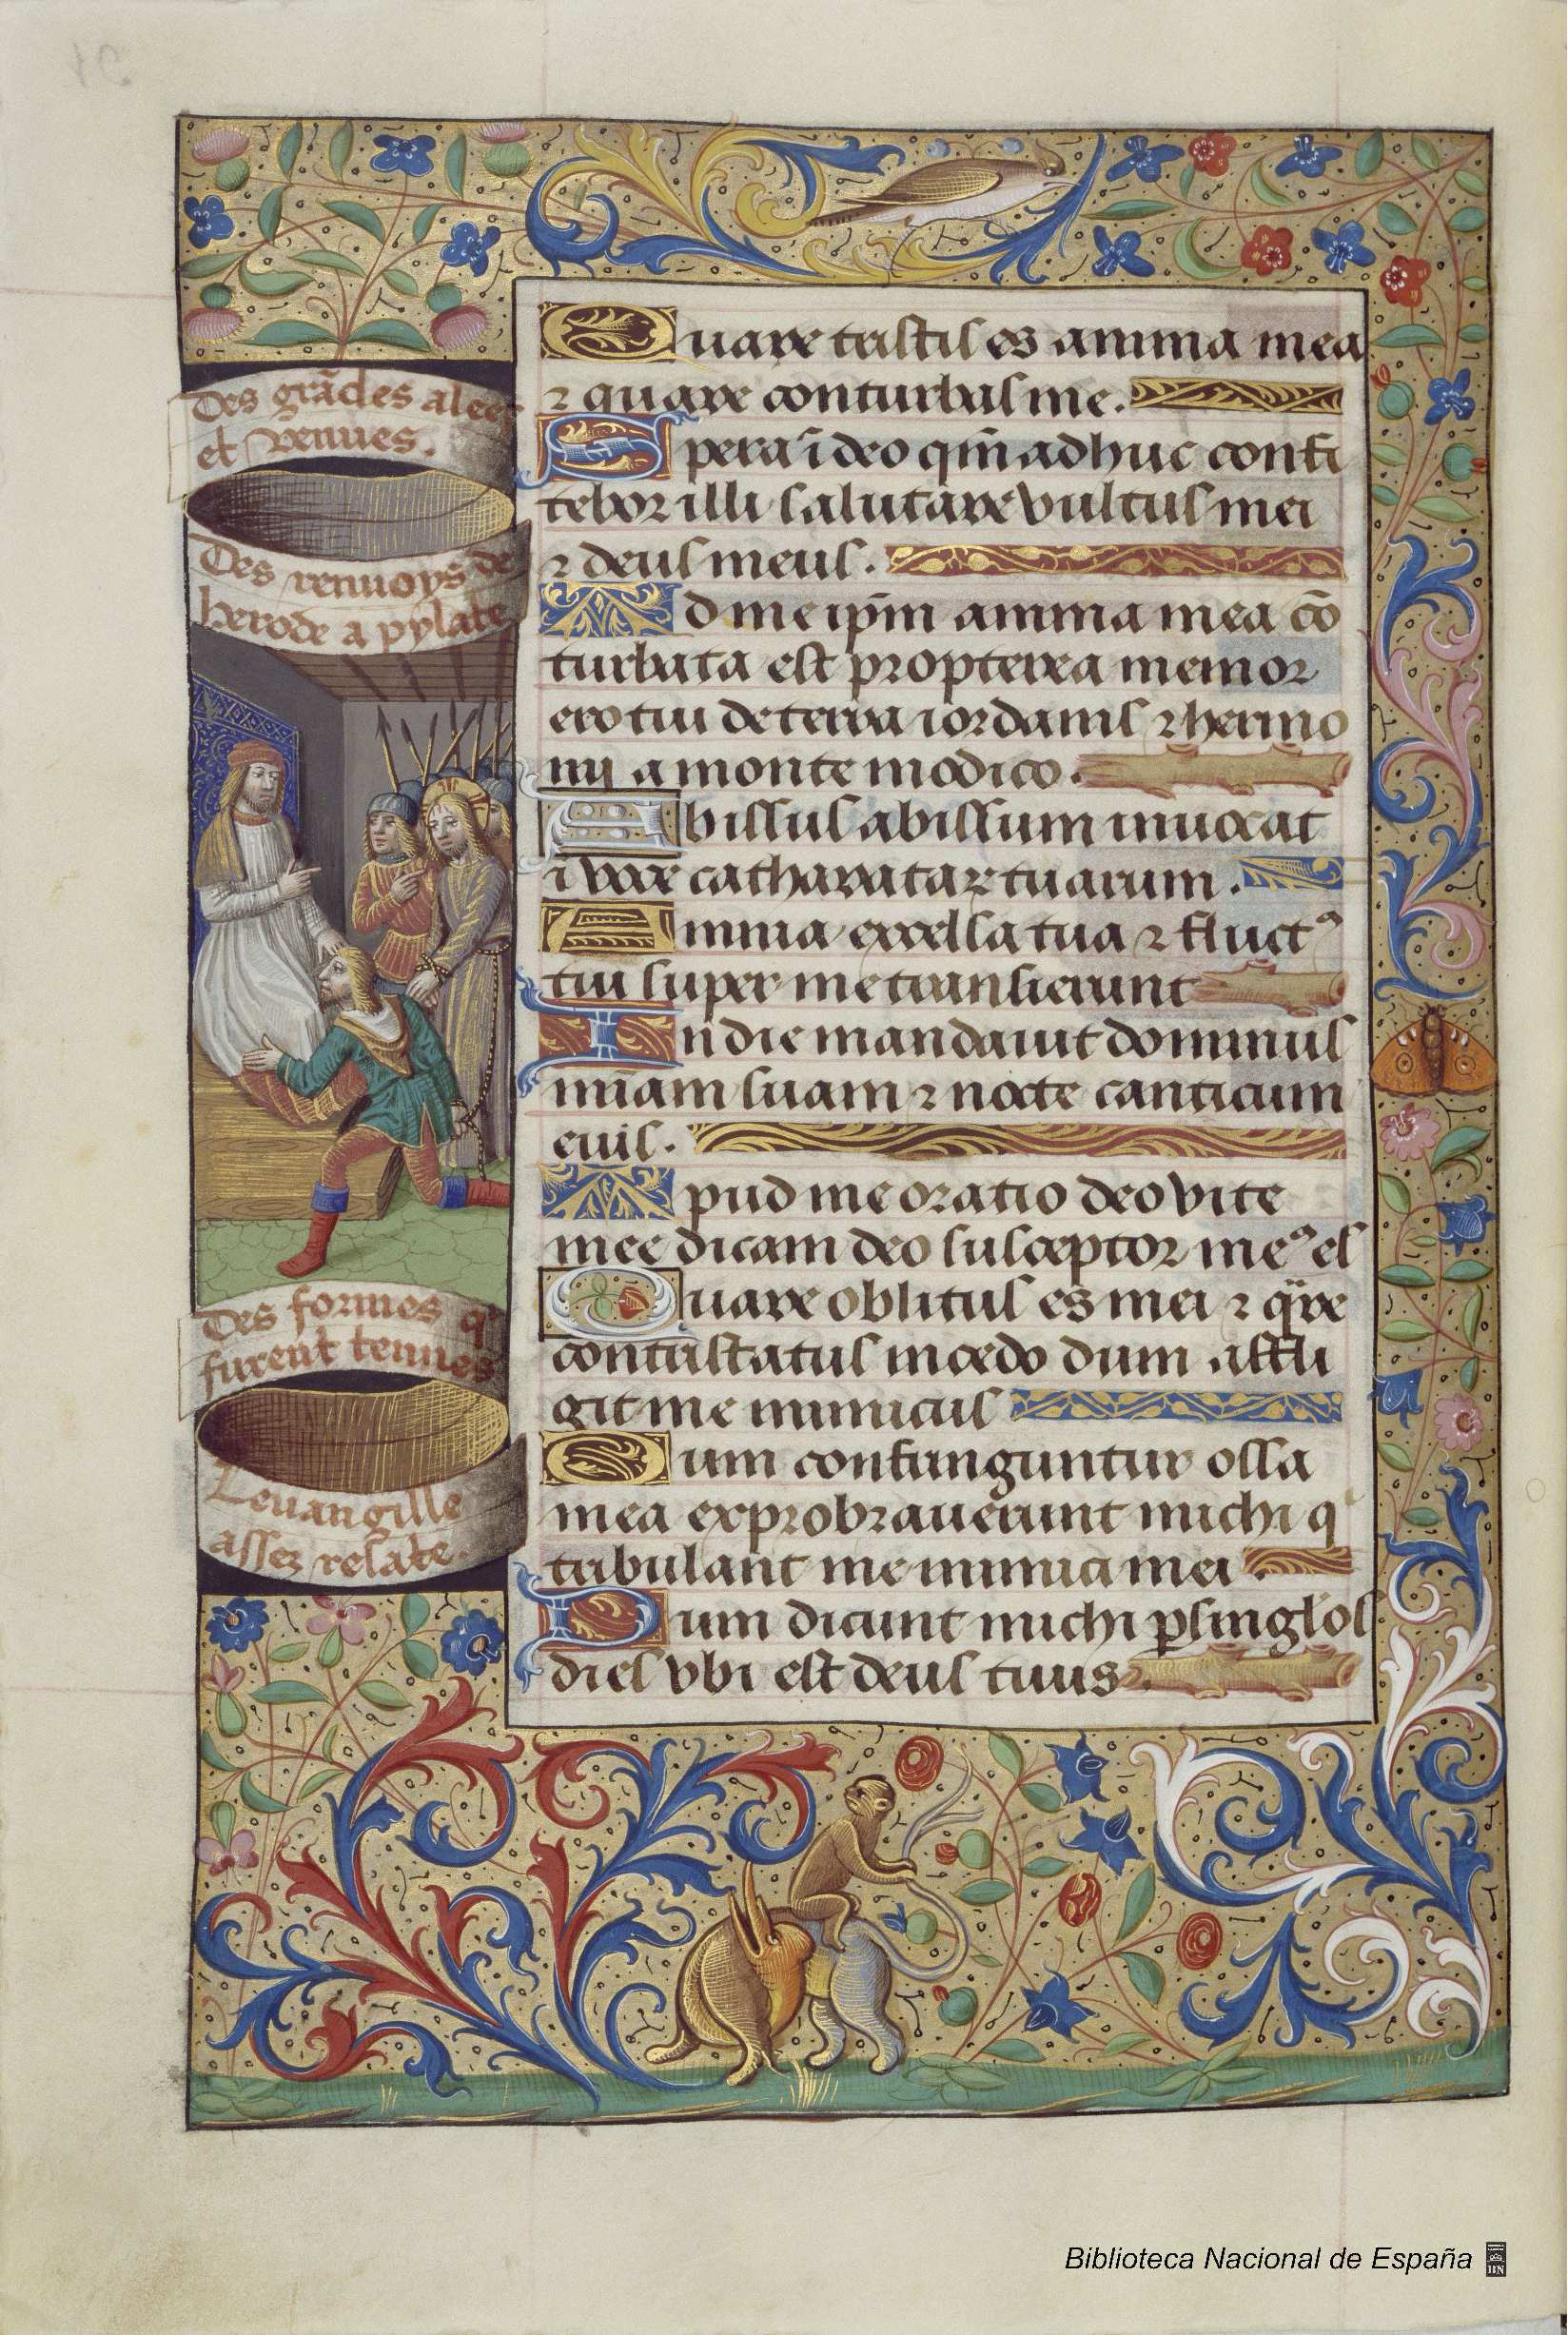 Des grãdes alees
et venues.
Des renuoys de
herode a pylate
Des formes q'
furent tenues
Leuangille
assez relate.
Quare tristis es anima mea
⁊ quare conturbas me.
Spera ĩ deo qm̃ adhuc confi
tebor illi salutare vultus mei
⁊ deus meus.
Ad me ip̃m anima mea cõ
turbata est propterea memor
ero tui de terra iordanis ⁊ hermo
nij a monte modico.
Abissus abissum inuocat
ĩ voce catharactar̃ tuarum.
Omnia excelsa tua ⁊ fluctꝰ
tui super me transierunt
In die mandauit dominus
mĩam suam ⁊ nocte canticum
eius.
Apud me oratio deo vite
mee dicam deo susceptor meꝰ es
Quare oblitus es mei ⁊ q̃re
contristatus incedo dum affli
git me inimicus
Dum confringuntur ossa
mea exprobrauerunt michi q'
tribulant me inimici mei
Dum dicunt michi ꝑ singl'os
dies vbi est deus tuus.
Biblioteca Nacional de España